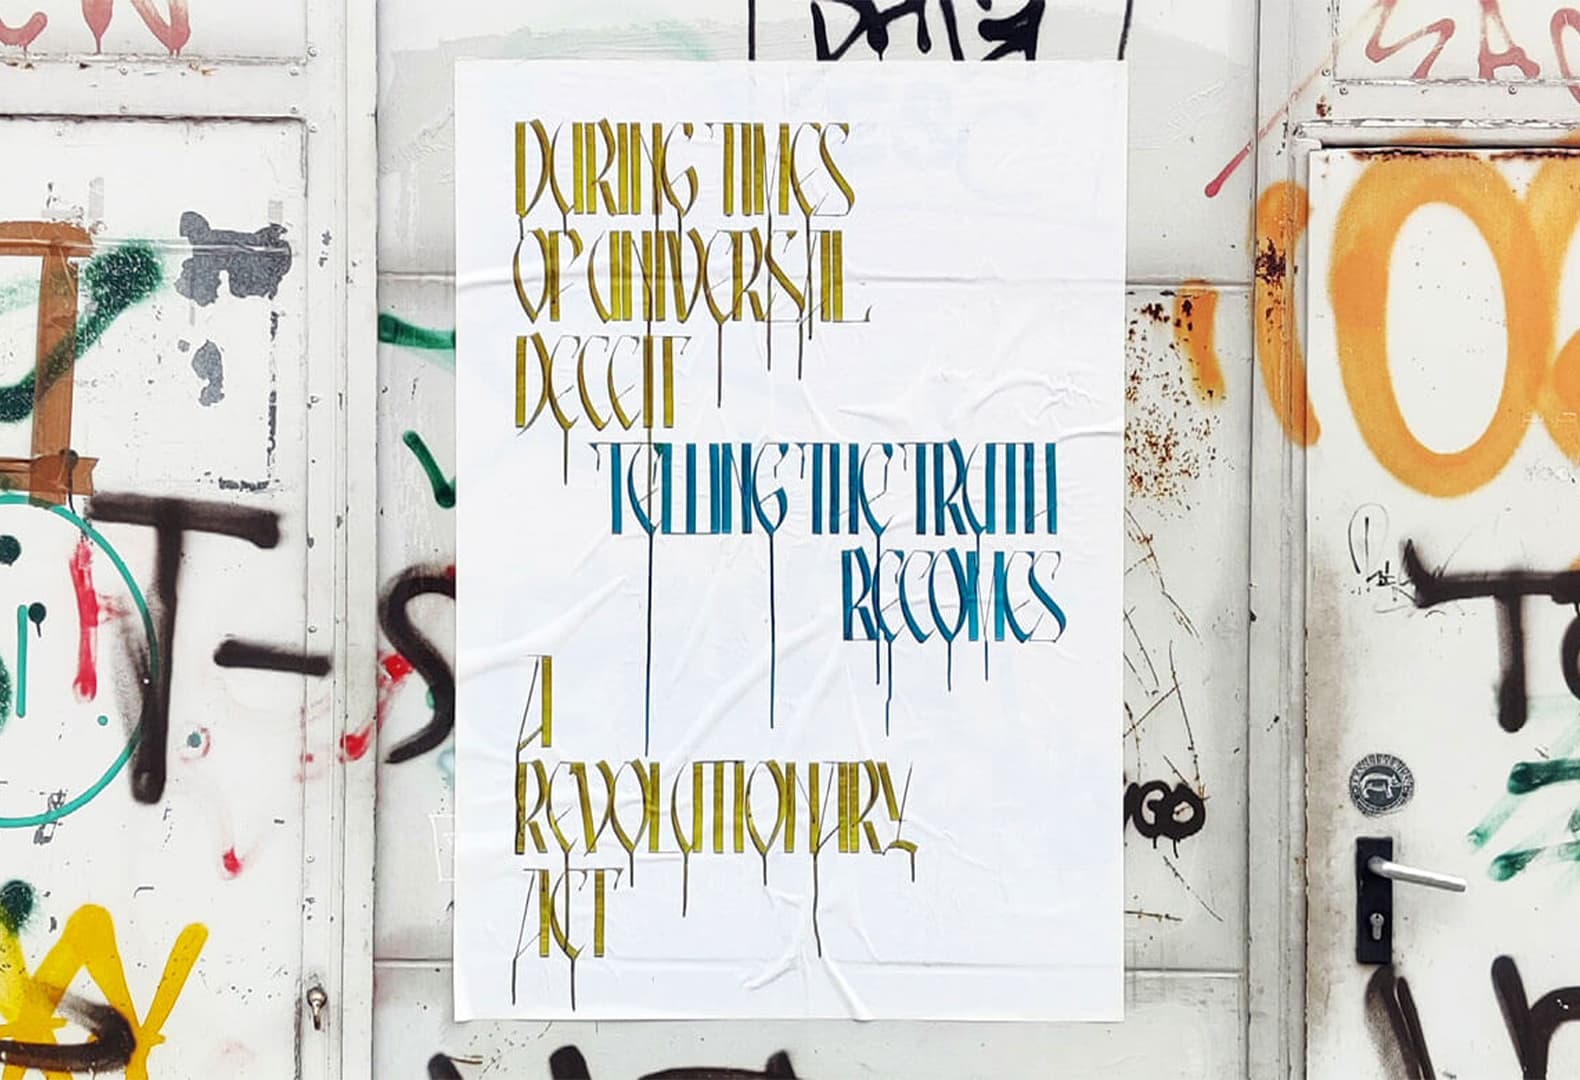 DURING TIMES
OF UNIVERSAL
DECEIT
TELLING THE TRUTH
BECOMES
A
REVOLUTIONARY
ACT